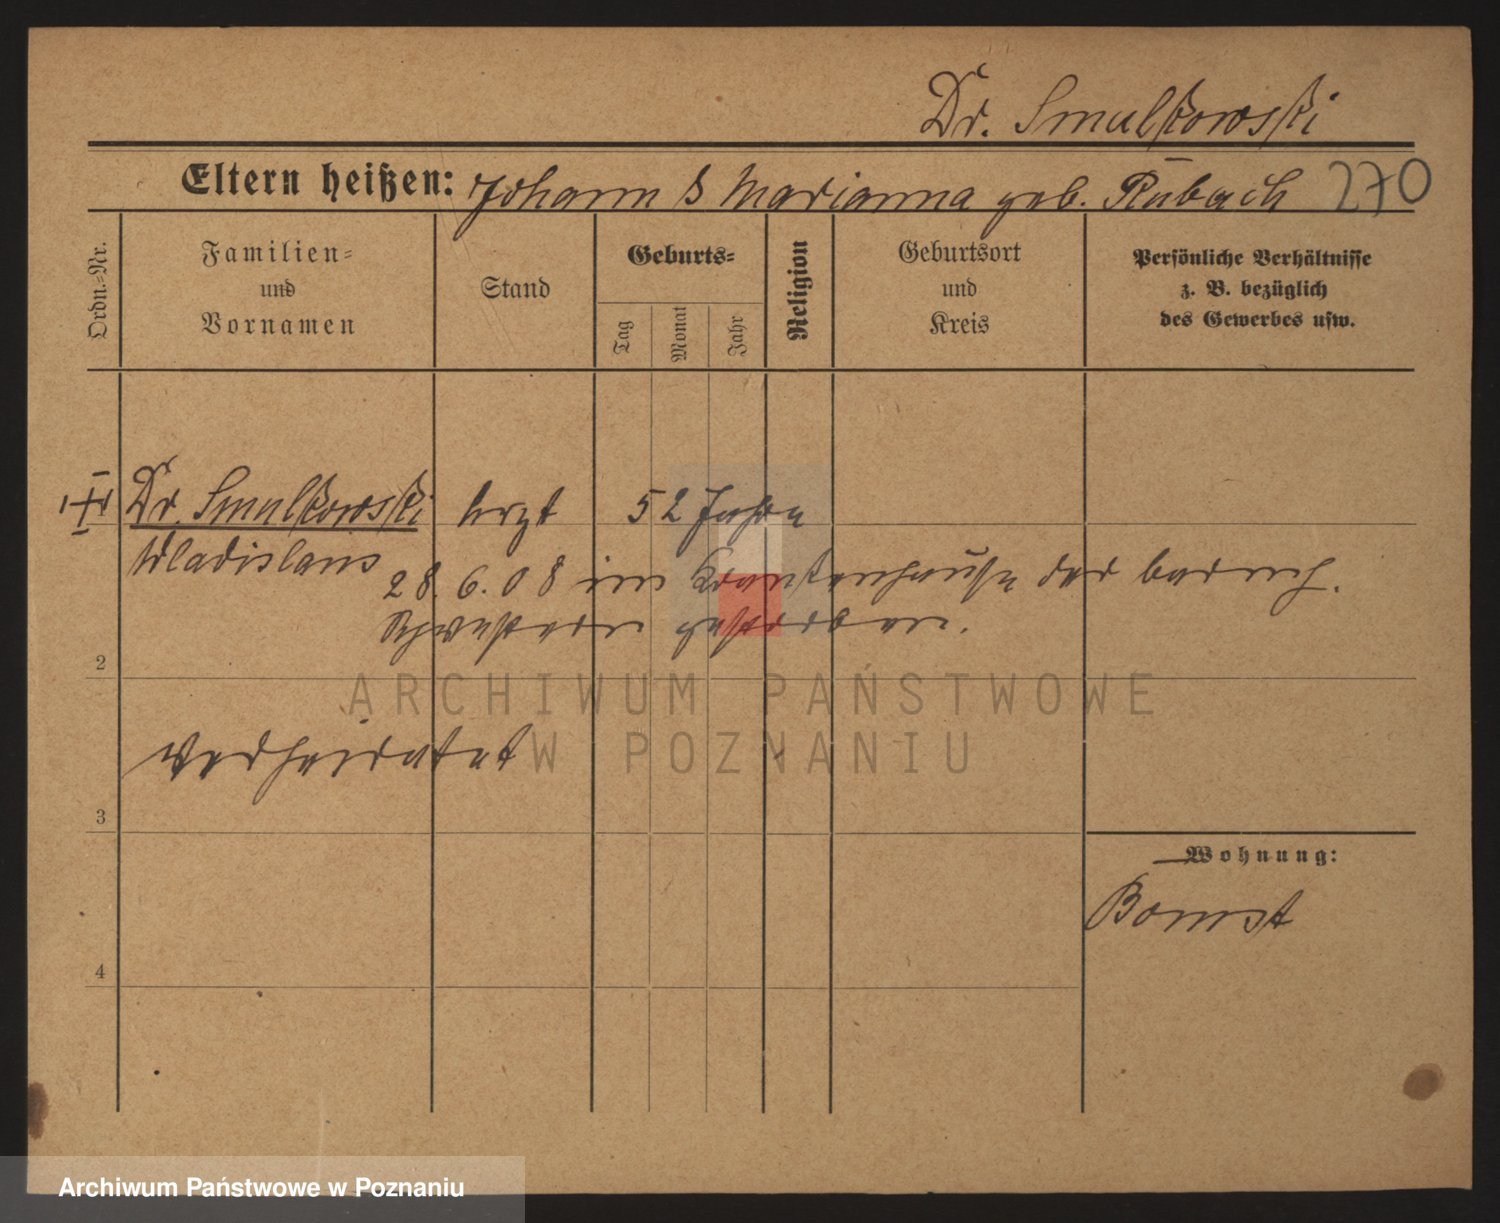 Dr. Smulkowski
Eltern heißen: Johann & Marianna geb. Rubach 270
Ordn.-Nr.
Familien-
und
Vornamen
Stand
Geburts-
Tag
Monat
Jahr
Religion
Geburtsort
und
Kreis
Persönliche Verhältnisse
z. B. bezüglich
des Gewerbes usw.
Dr. Smulkowski Arzt 52 Jahre
Wladislaus
28. 6. 08 im Krankenhause der barmh.
Schwestern gestorben.
2
verheiratet
3
Wohnung:
Bomst
4
ARCHIWUM PAŃSTWOWE
W POZNANIU
Archiwum Państwowe w Poznaniu